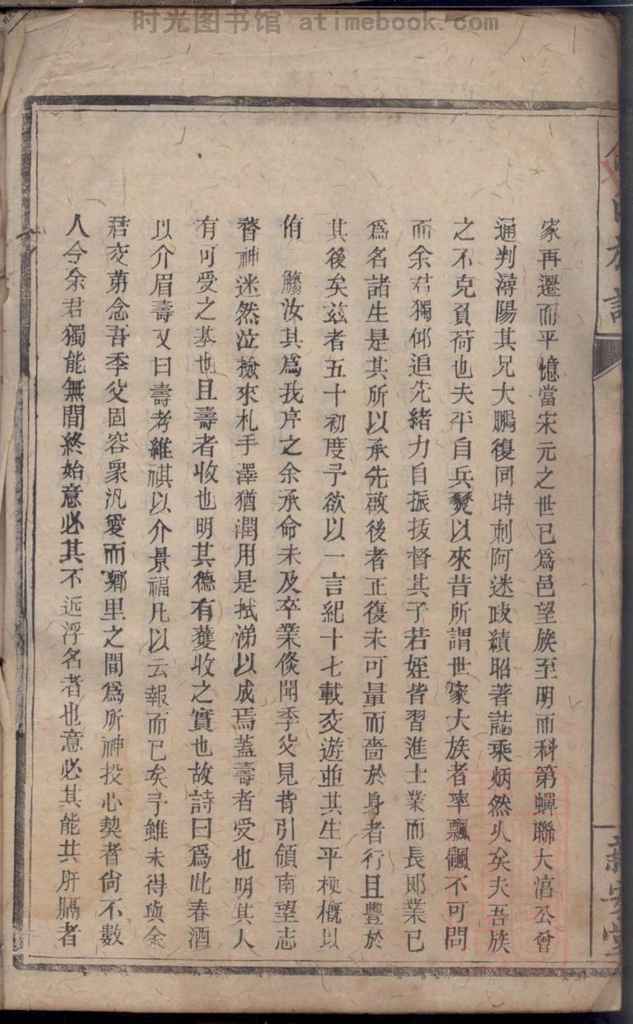 时光图书馆 atimebook.com
家再遷而平憶當宋元之世已為邑望族至明而科第蟬聯大濱公曾
通判潯陽其兄大鵬復同時刺阿迷政績昭著誌乘炳然久矣夫吾族
之不克負荷也夫平自兵燹以來昔所謂世家大族者率飄颻不可問
而余君獨仰追先緒力自振拔督其子若姪皆習進士業而長郎業已
為名諸生是其所以承先啟後者正復未可量而嗇於身者行且豐於
其後矣茲者五十初度予欲以一言紀十七載交遊並其生平梗概以
侑觴汝其為我序之余承命未及卒業倐聞季父見背引領南望志
瞀神迷然泣撿來札手澤猶潤用是拭涕以成焉蓋壽者受也明其人
有可受之基也且壽者收也明其德有獲收之實也故詩曰為此春酒
以介眉壽又曰壽考維祺以介景福凡以云報而已矣予雖未得與余
君交第念吾季父固容衆汎愛而鄉里之間為所神投心契者尙不數
人今余君獨能無間終始意必其不近浮名者也意必其能共肝膈者
氏族譜
新安堂